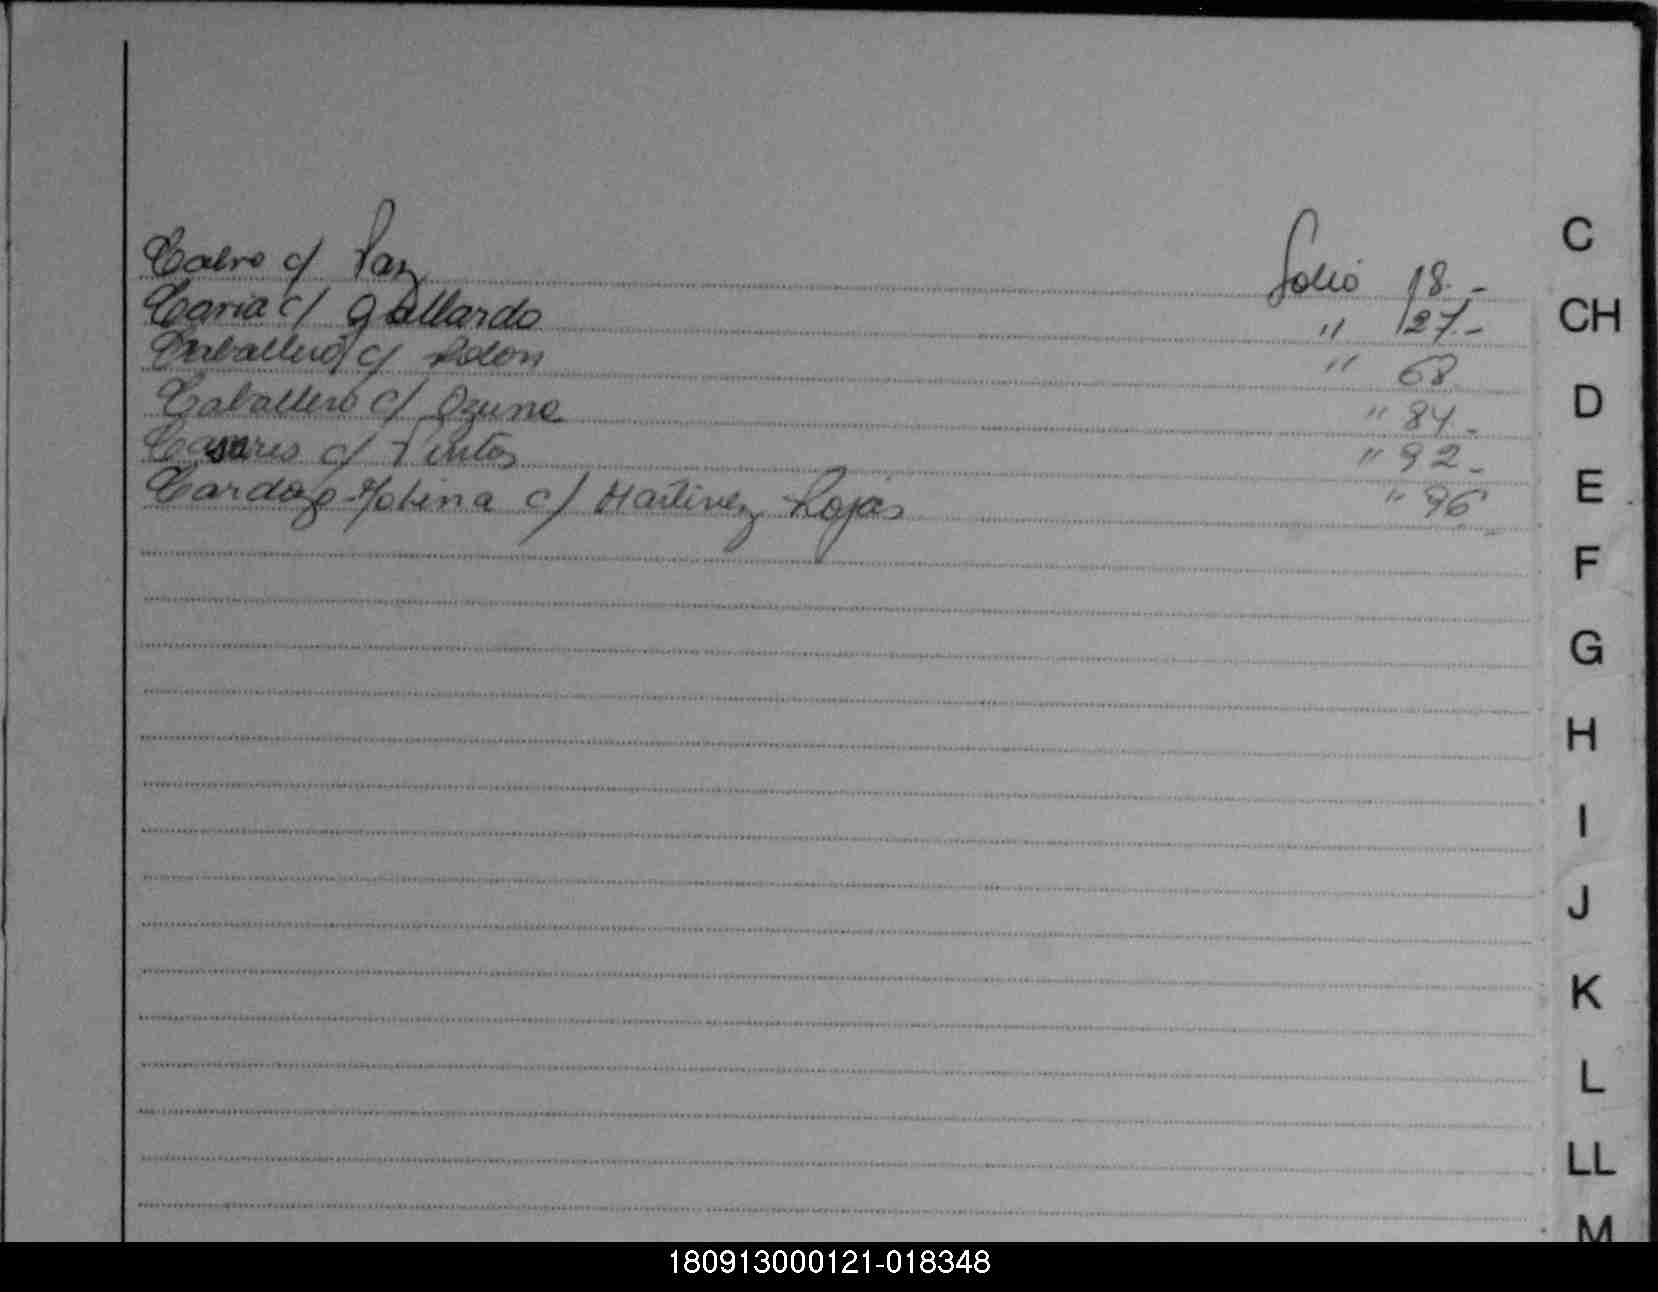 Calvo c/ Paz Folio 18.-
Caria c/ Gallardo " 27.-
Caballero c/ Rolon " 68
Caballero c/ Ozuna " 84.-
Casares c/ " 92.-
Cardozo Molina c/ Martinez Rojas " 96
C
CH
D
E
F
G
H
I
J
K
L
LL
M
180913000121-018348